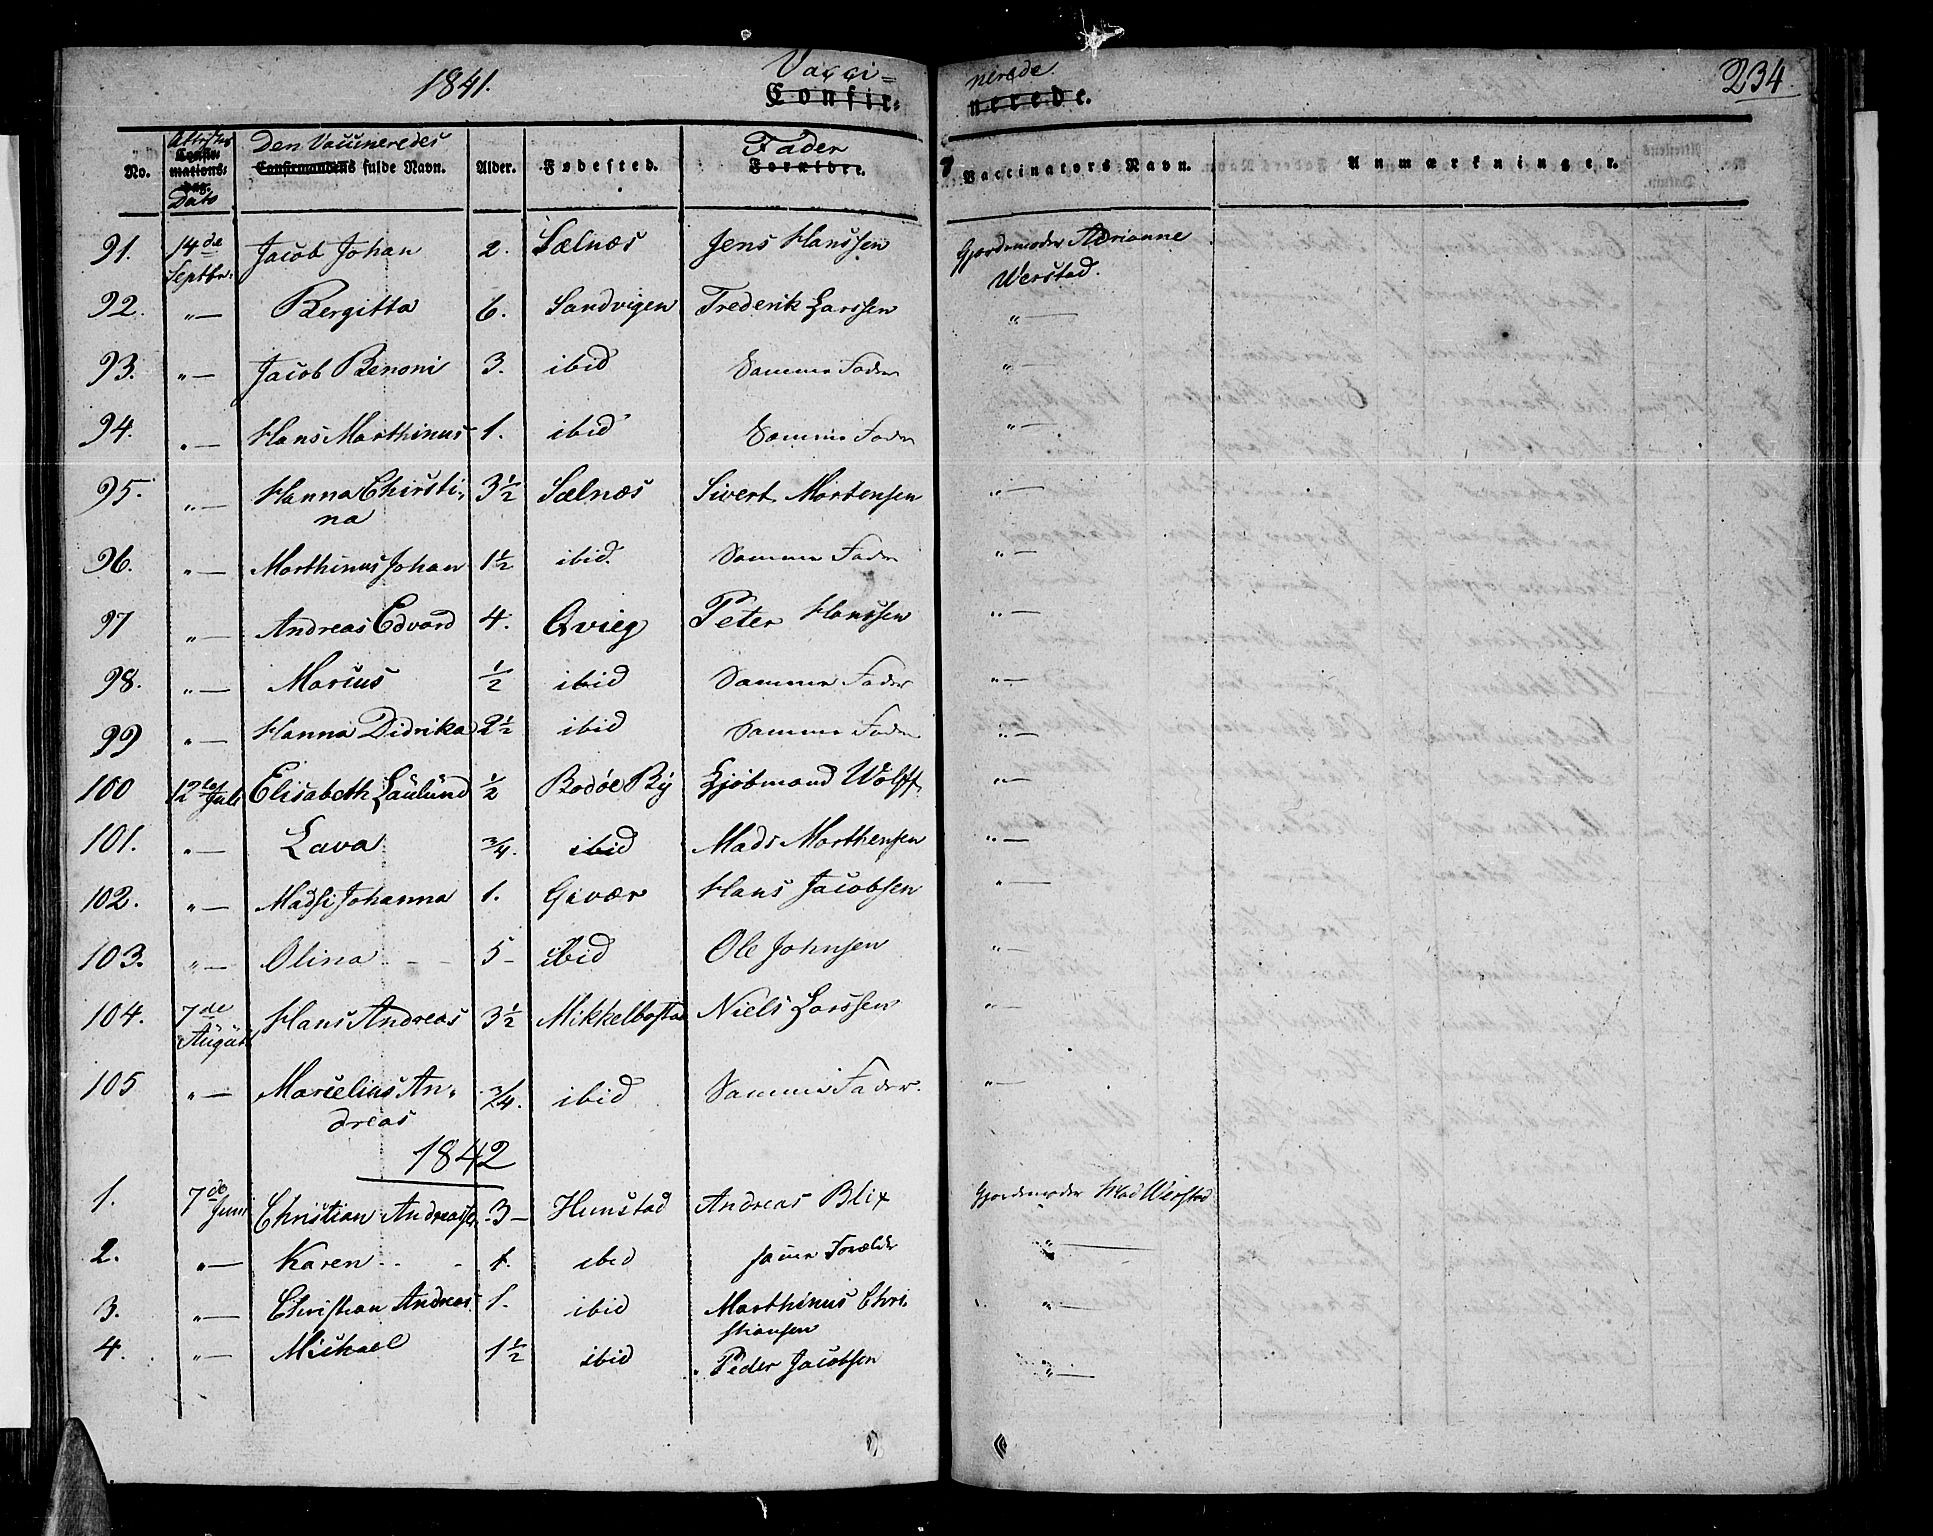 1841. Vacci= nerede 234.
Confir= nerede.
No. Attestens Confirmationsdag. Dato Den Vaccineredes Confirmandens fulde Navn. Alder. Fødested. Fader Forældre. Vaccinators Navn. Anmærkninger.
91. 14de Septbr. Jacob Johan 2. Sælnæs Jens Hanssen Gjordemoder Adrianne
Werstad.
92. "— Bergitta 6. Sandvigen Frederik Larssen "—
93. "— Jacob Benoni 3. ibid Samme Fader "—
94. "— Hans Marthinus 1. ibid Samme Fader "—
95. "— Hanna Christi= 3½ Sælnæs Sivert Mortensen "—
na
96. "— Marthinus Johan 1½ ibid. Samme Fader "—
97 "— Andreas Edvard 4. Qvieg Peter Hanssen "—
98. "— Marius ½ ibid Samme Fader "—
99 "— Hanna Didrika 2½ ibid Samme Fader "—
100 12te Juli Elisabeth Laulund ½ Bodøe By Kjøbmand Wolff "—
101. "— Lava ¾. ibid Mads Marthensen "—
102. "— Madsi Johanna 1. Givær Hans Jacobsen "—
103. "— Olina - - 5- ibid Ole Johnsen "—
104. 7de August Hans Andreas 3½ Mikkelbostad Niels Larssen "—
105 "— Marcelius An= ¾. ibid Samme Fader. "—
dreas
1842
1. 7de Juni Christian Andreas 3- Hunstad Andreas Blix Gjordemoder Mad Werstad
2. "— Karen - - - 1. ibid samme Forældre "—
3. "— Christian Andreas 1. ibid Marthinus Chri= "—
stiansen
4. "— Michael 1½ ibid Peder Jacobsen "—